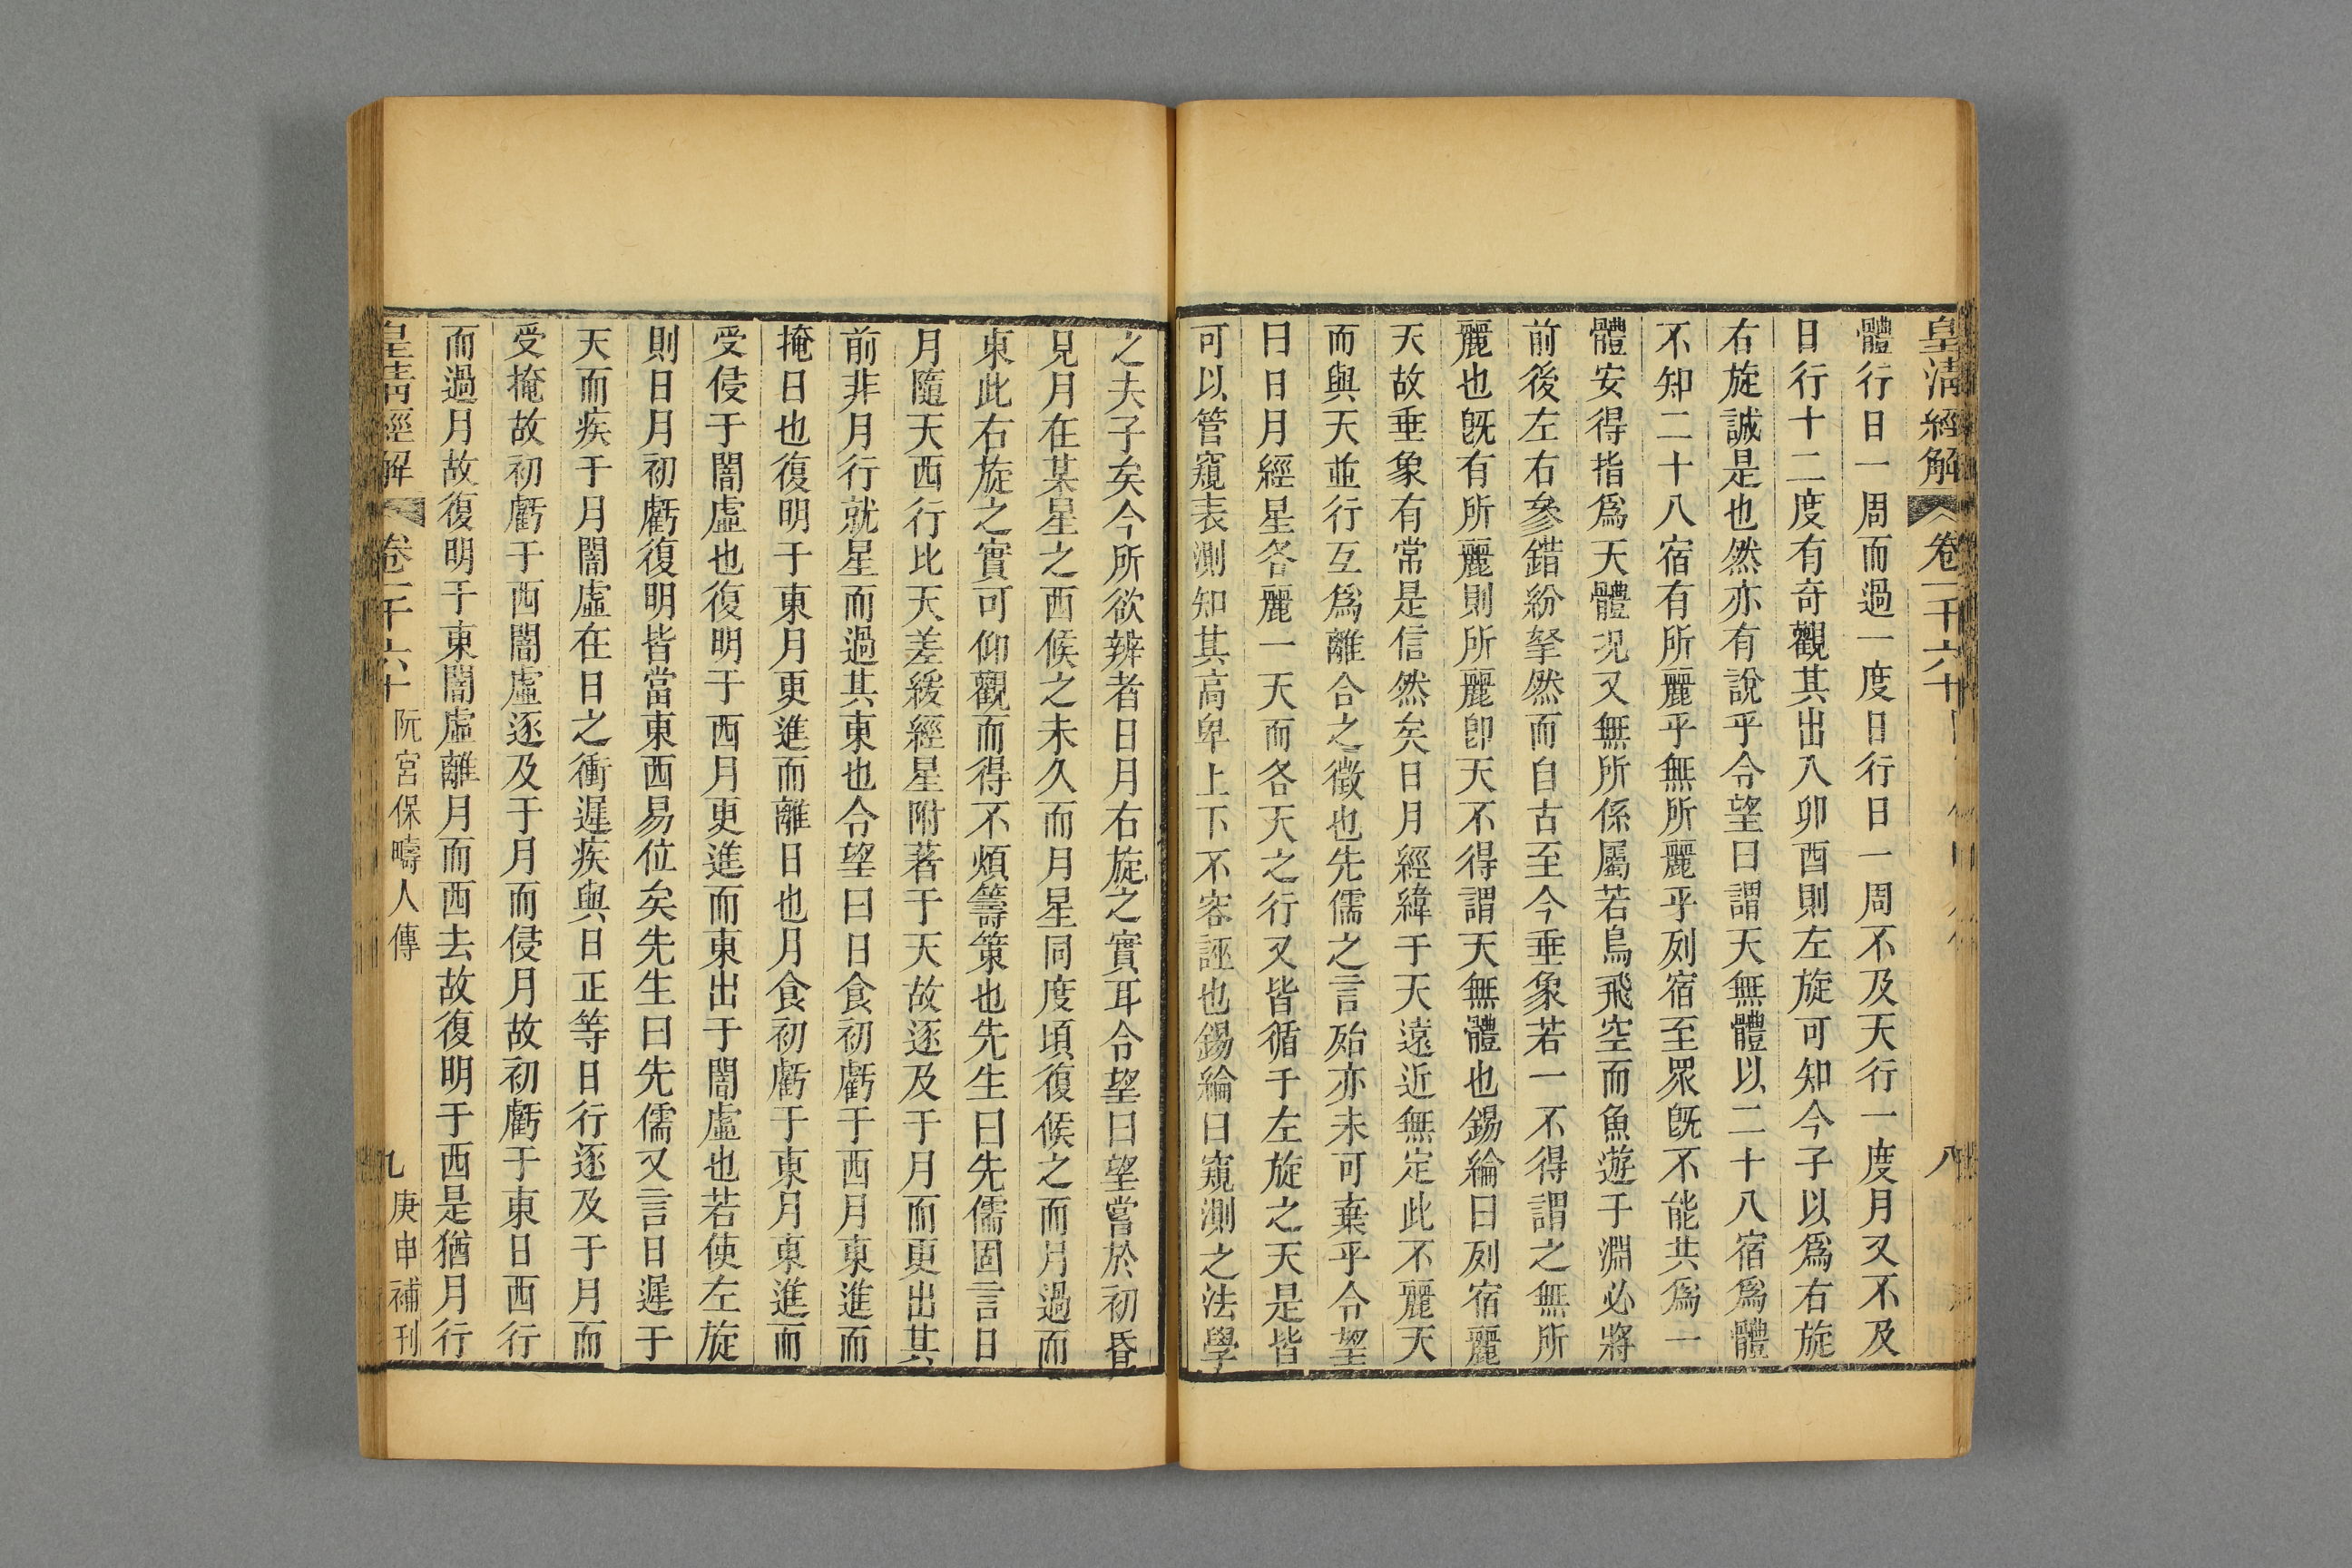 皇清經解 卷一千六十 八
體行日一周而過一度日行日一周不及天行一度月又不及
日行十二度有奇觀其出入卯酉則左旋可知今子以爲右旋
右旋誠是也然亦有說乎令望曰謂天無體以二十八宿爲體
不知二十八宿有所麗乎無所麗乎列宿至眾旣不能共爲一
體安得指爲天體况又無所係屬若鳥飛空而魚遊于淵必將
前後左右參錯紛拏然而自古至今垂象若一不得謂之無所
麗也旣有所麗則所麗卽天不得謂天無體也錫綸曰列宿麗
天故垂象有常是信然矣日月經緯于天遠近無定此不麗天
而與天並行互爲離合之徵也先儒之言殆亦未可棄乎令望
曰日月經星各麗一天而各天之行又皆循于左旋之天是皆
可以管窺表測知其高卑上下不容誣也錫綸曰窺測之法學
之夫子矣今所欲辨者日月右旋之實耳令望曰望嘗於初昏
見月在某星之西候之未久而月星同度頃復候之而月過而
東此右旋之實可仰觀而得不煩籌策也先生曰先儒固言日
月隨天西行比天差緩經星附著于天故逐及于月而更出其
前非月行就星而過其東也令望曰日食初虧于西月東進而
掩日也復明于東月更進而離日也月食初虧于東月東進而
受侵于闇虛也復明于西月更進而東出于闇虛也若使左旋
則日月初虧復明皆當東西易位矣先生曰先儒又言日遲于
天而疾于月闇虛在日之衝遲疾與日正等日行逐及于月而
受掩故初虧于西闇虛逐及于月而侵月故初虧于東日西行
而過月故復明于東闇虛離月而西去故復明于西是猶月行
皇清經解 卷一千六十 阮宮保疇人傳 九 庚申補刊